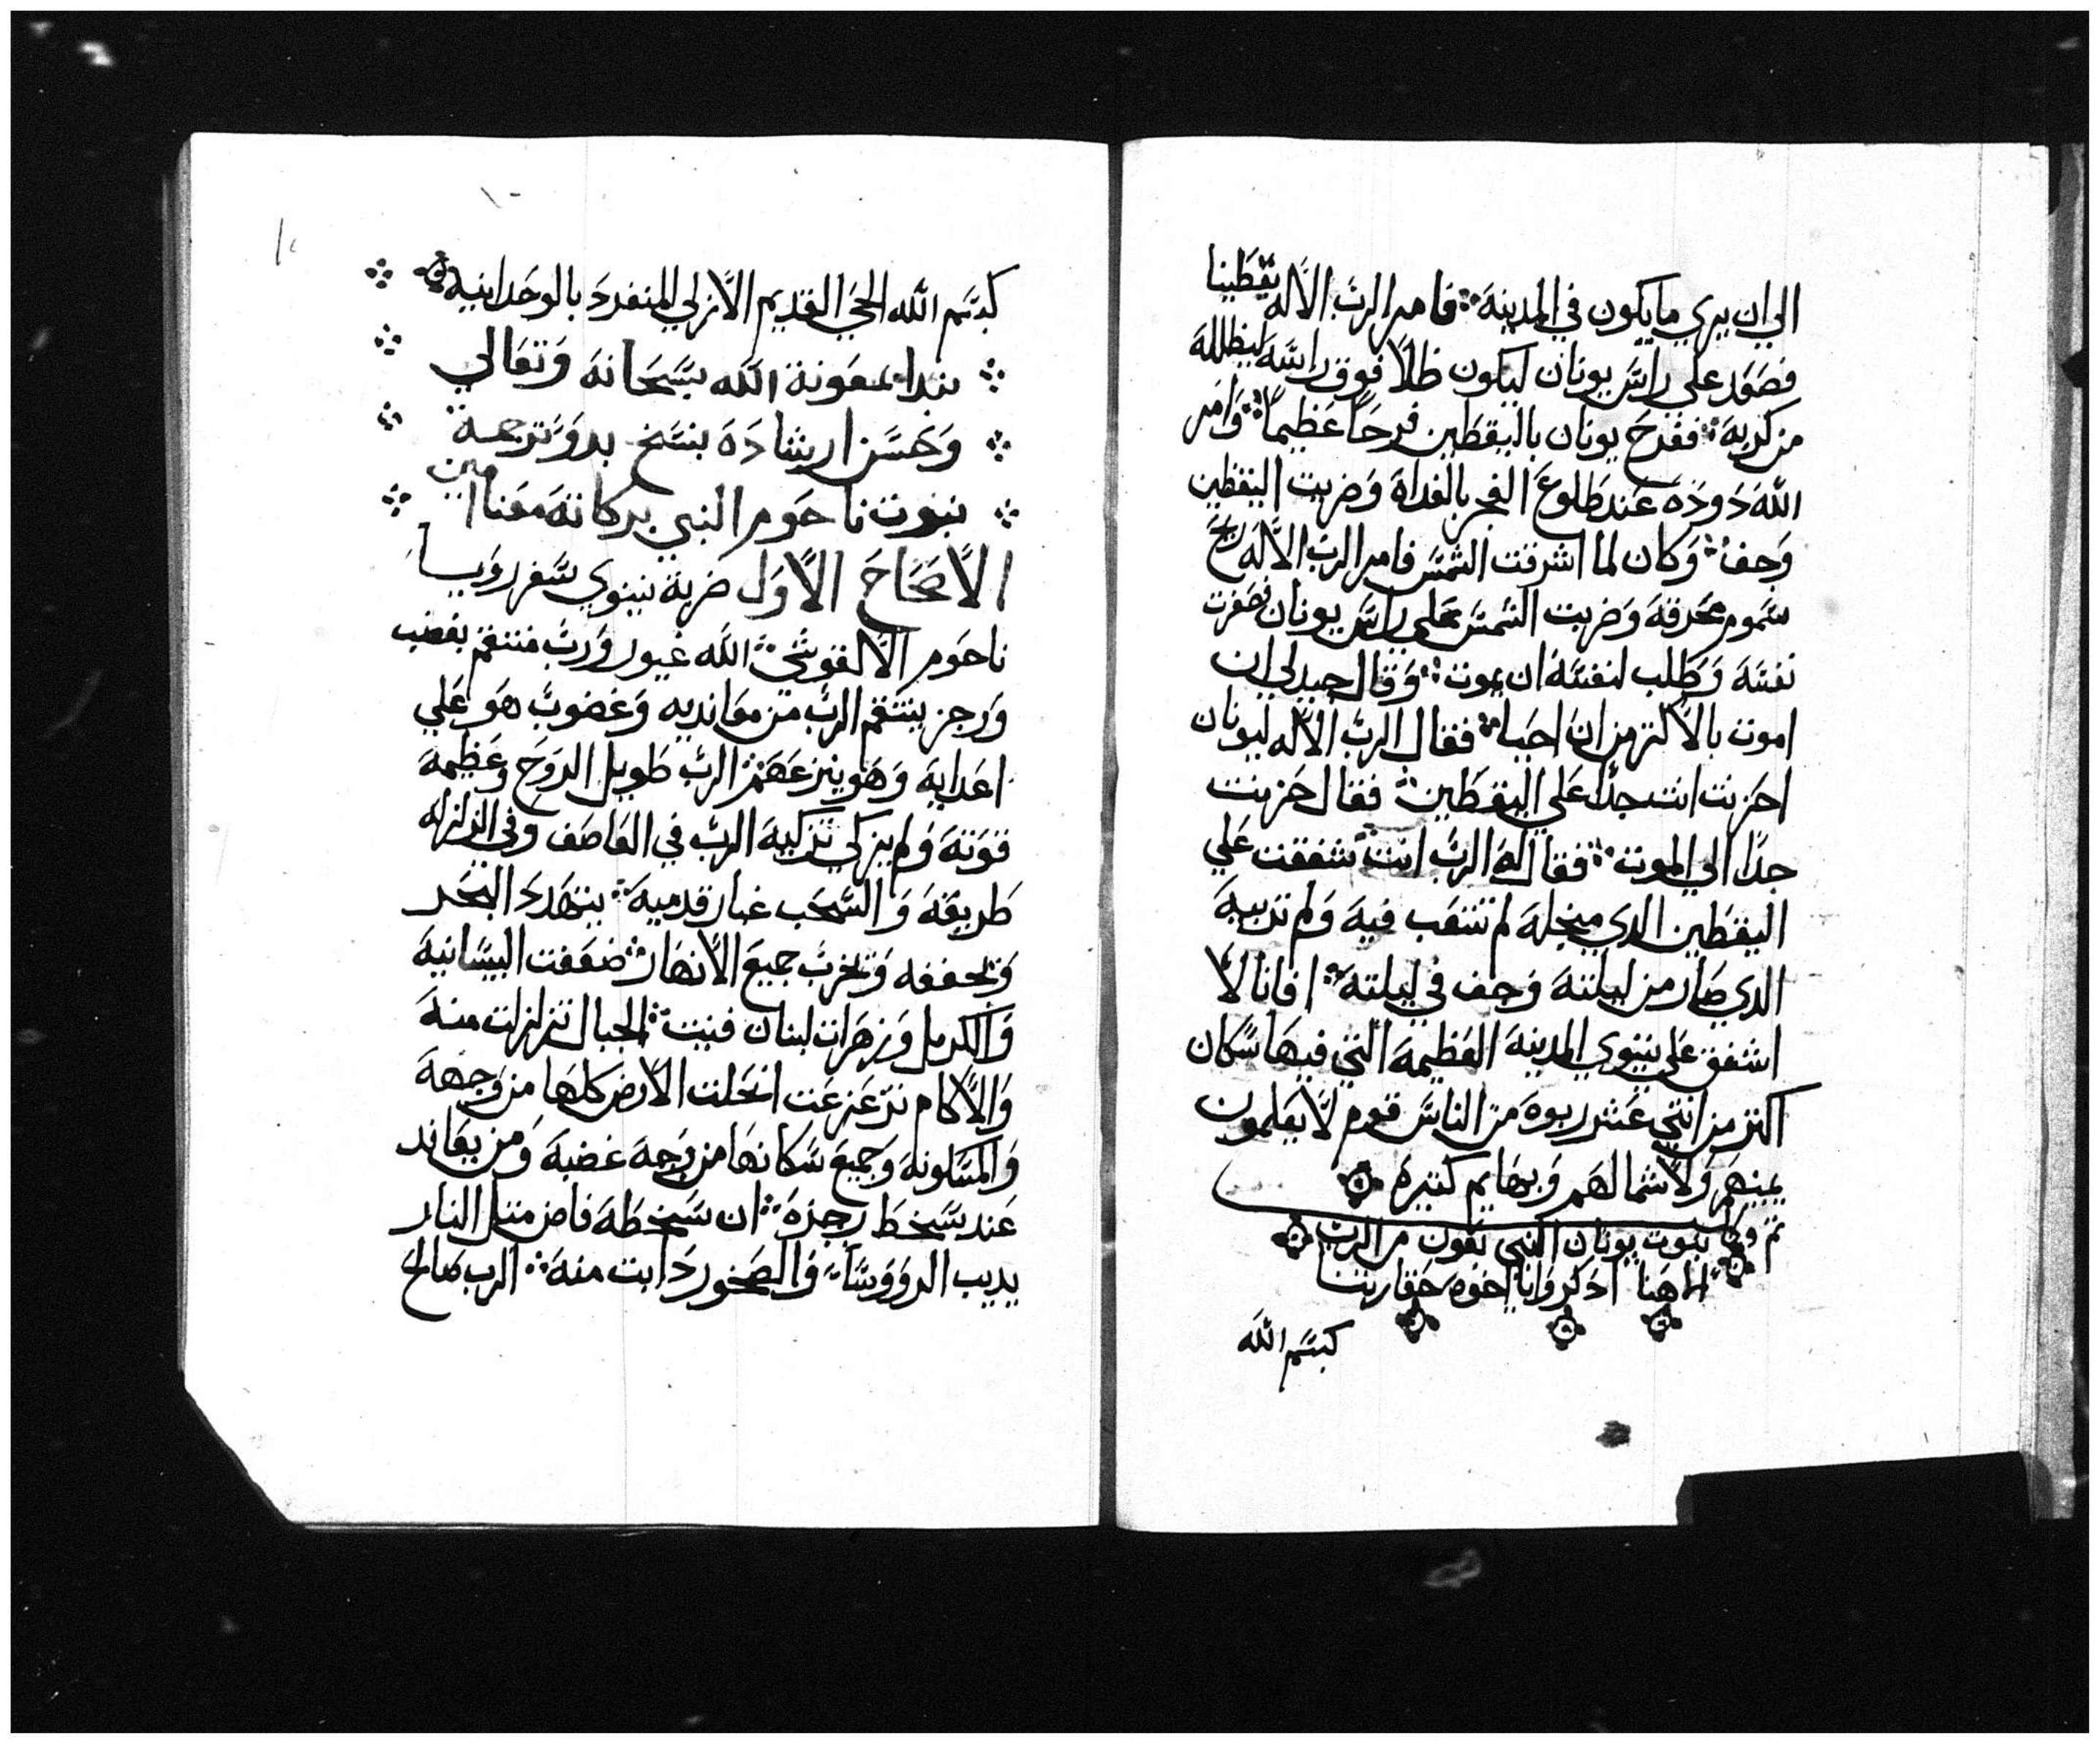 الي ان يري ما يكون في المدينة فامر الرب الاله يقطينا
فصعد علي راس يونان ليكون ظلا فوق راسه ليظلله
من كربه ففرح يونان باليقطين فرحا عظيما وامر
الله دوده عند طلوع الفجر بالغداة وضربت اليقطين
وجف وكان لما اشرقت الشمس فامر الرب الاله ريح
سموم محرقه وضربت الشمس علي راس يونان فصغرت
نفسه وطلب لنفسه ان يموت وقال جيد لي ان
اموت بالاكتر من ان احيا فقال الرب الاله ليونان
احزنت انت جدا علي اليقطين فقال حزنت
جدا الي الموت فقال له الرب انت شفقت علي
اليقطين الدي منجله لم تتعب فيه ولم تربيه
الدي صار من ليلته وجف في ليلته افانا لا
اشفق علي نينوي المدينه العظيمه التي فيها سكان
اكتر من اتني عشر ربوه من الناس قوم لا يعلمون
يمينهم ولا شمالهم وبهايم كتيره
تم وكمل نبوت يونان النبي بعون من الرب
الاهنا ادكروا يا اخوه حقارتنا
كبسم الله
كبسم الله الحي القديم الازلي المنفرد بالوحدانيه
نبدا بمعونة الله سبحانه وتعالي
وحسن ارشاده بنسخ بدو ترجمة
نبوت ناحوم النبي بركاته معنا امين
الاصحاح الاول ضربة نينوي سفر رويا
ناحوم الالقوشي الله غيور ورب منتقم بغضب
ورجز ينتقم الرب من معانديه وغضوب هو علي
اعدايه وهو ينزعهم الرب طويل الروح وعظيمه
قوته ولم يزكي تزكيه الرب في العاصف وفي الزلزله
طريقه والسحب غبار قدميه يتهدد البحر
ويجففه ويخرب جميع الانهار ضعفت البيسانيه
والكرمل وزهرات لبنان فنيت الجبال تزلزلت منه
والاكام تزعزعت انحلت الارض كلها من وجهه
والمسكونه وجميع سكانها من وجه غضبه ومن يعاند
عند سخط رجزه ان سخطه فاض متل النار
يديب الرووسا والصخور دابت منه الرب صالح